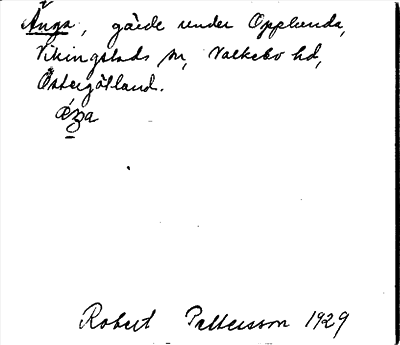 Änga, gärde under Opplunda,
Vikingstads sn, Valkebo hd,
Östergötland.
Robert Pettersson 1929